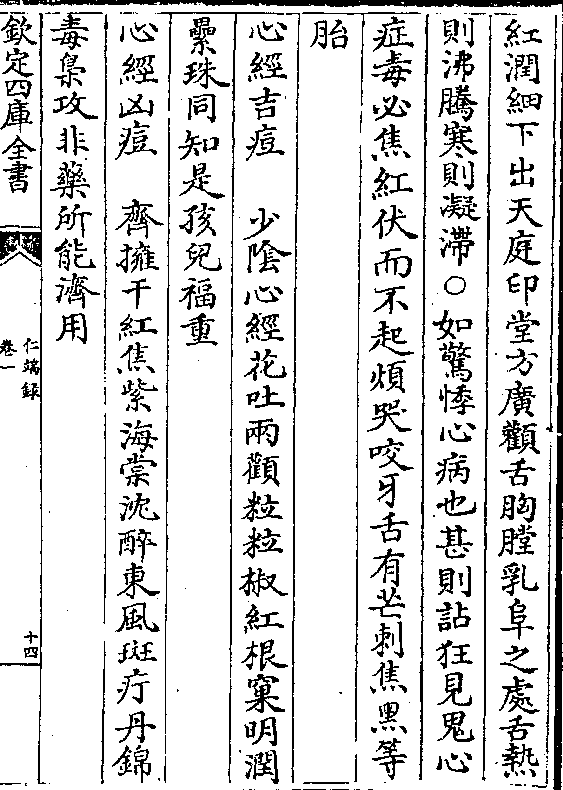 紅潤細下出天庭印堂方廣顴舌胸膛乳阜之處舌熱
則沸騰寒則凝滯○如驚悸心病也甚則詀狂見鬼心
症毒必焦紅伏而不起煩哭咬牙舌有芒刺焦黑等
胎
心經吉痘　少陰心經花吐兩顴粒粒椒紅根窠明潤
纍珠同知是孩兒福重
心經凶痘　齊擁干紅焦紫海棠沈醉東風斑疔丹錦
毒梟攻非藥所能濟用
欽定四庫全書
仁端録
卷一
十四